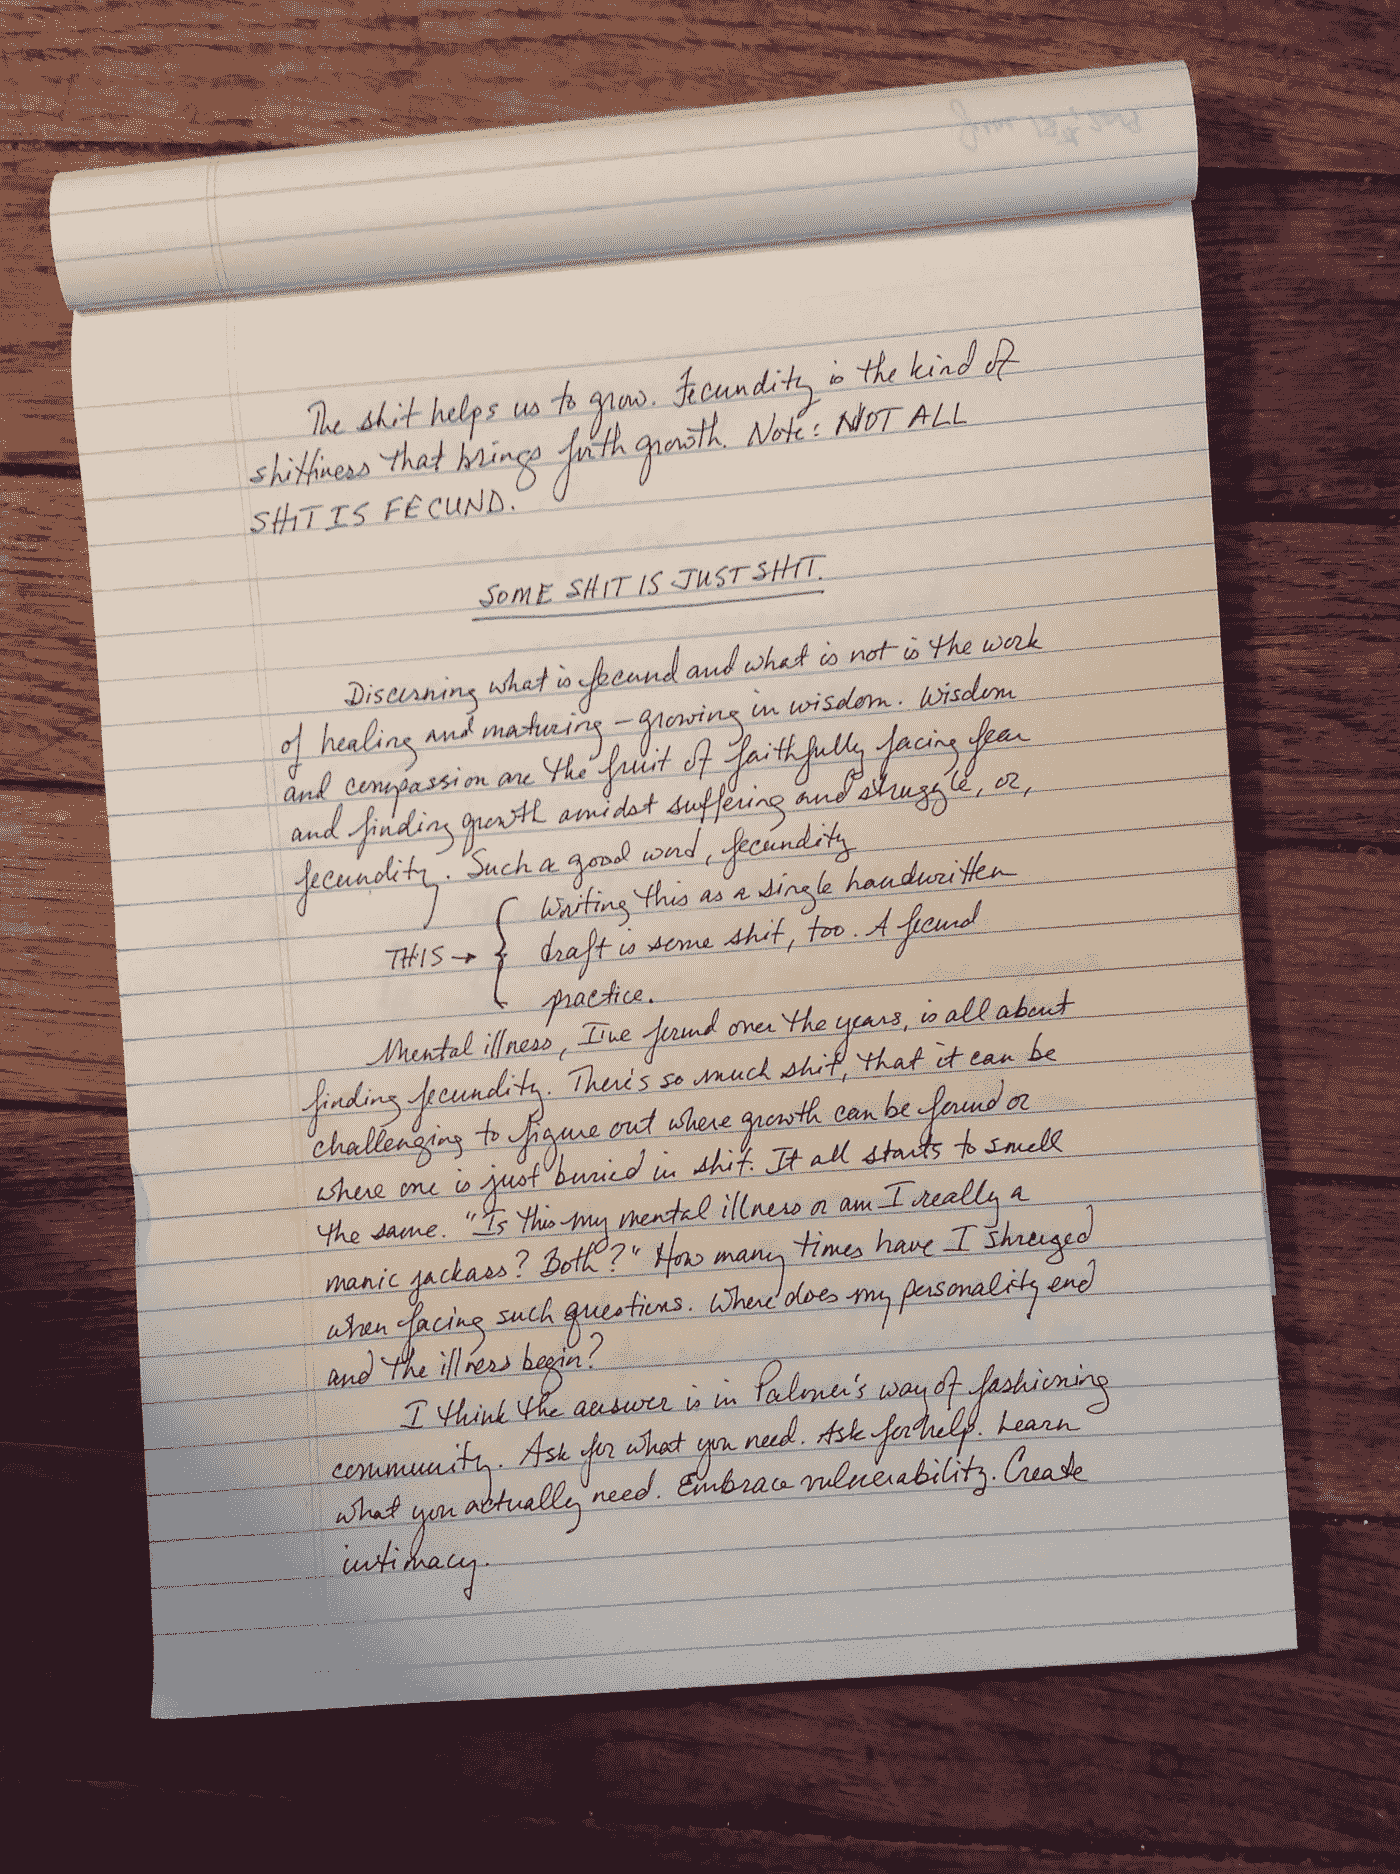 The shit helps us to grow. Fecundity is the kind of
shittiness that brings forth growth. Note: NOT ALL
SHIT IS FECUND.
SOME SHIT IS JUST SHIT.
Discerning what is fecund and what is not is the work
of healing and maturing – growing in wisdom. Wisdom
and compassion are the fruit of faithfully facing fear
and finding growth amidst suffering and struggle, or,
fecundity. Such a good word, fecundity
Writing this as a single handwritten
THIS → draft is some shit, too. A fecund
practice.
Mental illness, I've found over the years, is all about
finding fecundity. There's so much shit, that it can be
challenging to figure out where growth can be found or
where one is just buried in shit. It all starts to smell
the same. "Is this my mental illness or am I really a
manic jackass? Both?" How many times have I shrugged
when facing such questions. Where does my personality end
and the illness begin?
I think the answer is in Palmer's way of fashioning
community. Ask for what you need. Ask for help. Learn
what you actually need. Embrace vulnerability. Create
intimacy.